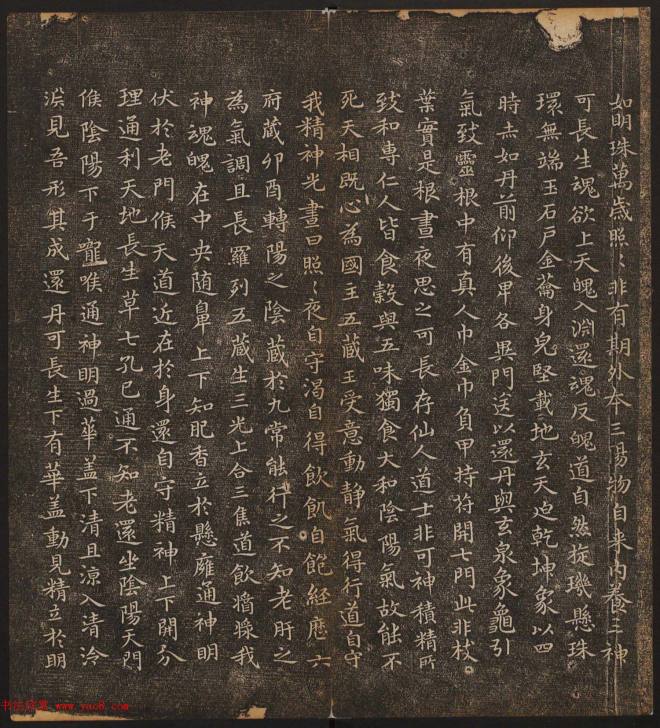 如明珠萬歲照〻非有期外本三陽物自来内養三神
可長生魂欲上天魄入淵還魂反魄道自然㧞璣懸珠
環無端玉石戶金蘥身皃堅載地玄天迫乾坤象以四
時赤如丹前仰後卑各異門送以還丹與玄泉象龜引
氣致靈根中有真人巾金巾負甲持符開七門此非枝
葉實是根晝夜思之可長存仙人道士非可神積精所
致和專仁人皆食穀與五味獨食大和陰陽氣故能不
死天相既心為國主五藏王受意動静氣得行道自守
我精神光晝日照〻夜自守渴自得飲飢自飽經歷六
府藏卯酉轉陽之陰藏於九常能行之不知老肝之
為氣調且長羅列五藏生三光上合三焦道飲醬漿我
神魂魄在中央随鼻上下知肥香立於懸雍通神明
伏於老門候天道近在於身還自守精神上下開分
理通利天地長生草七孔已通不知老還坐陰陽天門
候陰陽下于嚨喉通神明過華盖下清且涼入清泠
淵見吾形其成還丹可長生下有華盖動見精立於明
书法欣赏 www.yac8.com